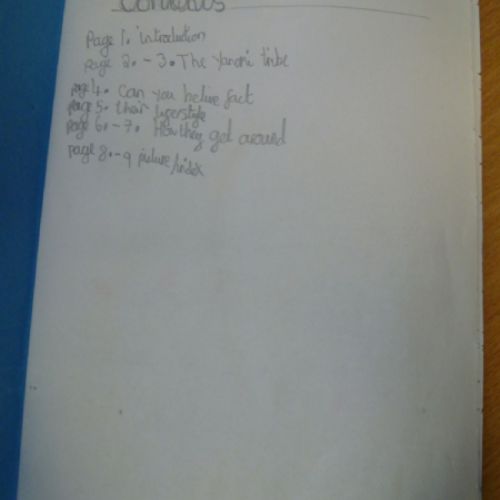 Contents
Page 1. introduction
page 2. - 3. The Yanomi tribe
page 4. Can you belive fact
page 5. their liferstyle
page 6. - 7. How they get around
page 8. - 9 picture/index